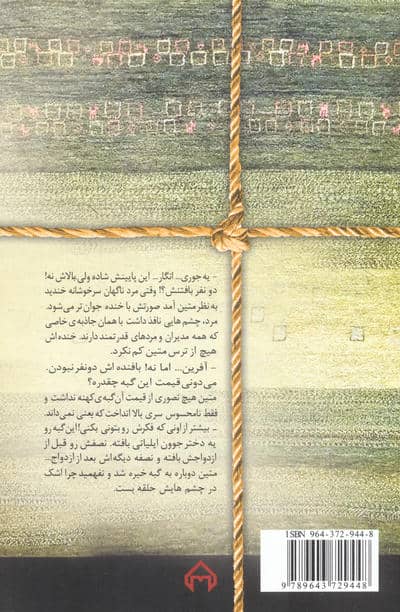 - یه جوری... انگار... این پایینش شاده ولی بالاش نه!
دو نفر بافتنش؟! وقتی مرد ناگهان سرخوشانه خندید
به نظر متین آمد صورتش با خنده جوان تر می‌شود.
مرد، چشم هایی نافذ داشت با همان جاذبه ی خاصی
که همه مدیران و مردهای قدرتمند دارند. خنده اش
هیچ از ترس متین کم نکرد.
- آفرین... اما نه! بافنده اش دونفر نبودن.
می‌دونی قیمت این گبه چقدره؟
متین هیچ تصوری از قیمت آن گبه‌ی کهنه نداشت و
فقط نامحسوس سری بالا انداخت که یعنی نمی‌داند.
- بیشتر از اونی که فکرش رو بتونی بکنی! این گبه رو
یه دختر جوون ایلیاتی بافته. نصفش رو قبل از
ازدواجش بافته و نصفه دیگه اش بعد از ازدواج...
متین دوباره به گبه خیره شد و نفهمید چرا اشک
در چشم هایش حلقه بست.
ISBN 964-372-944-8
9 789643 729448